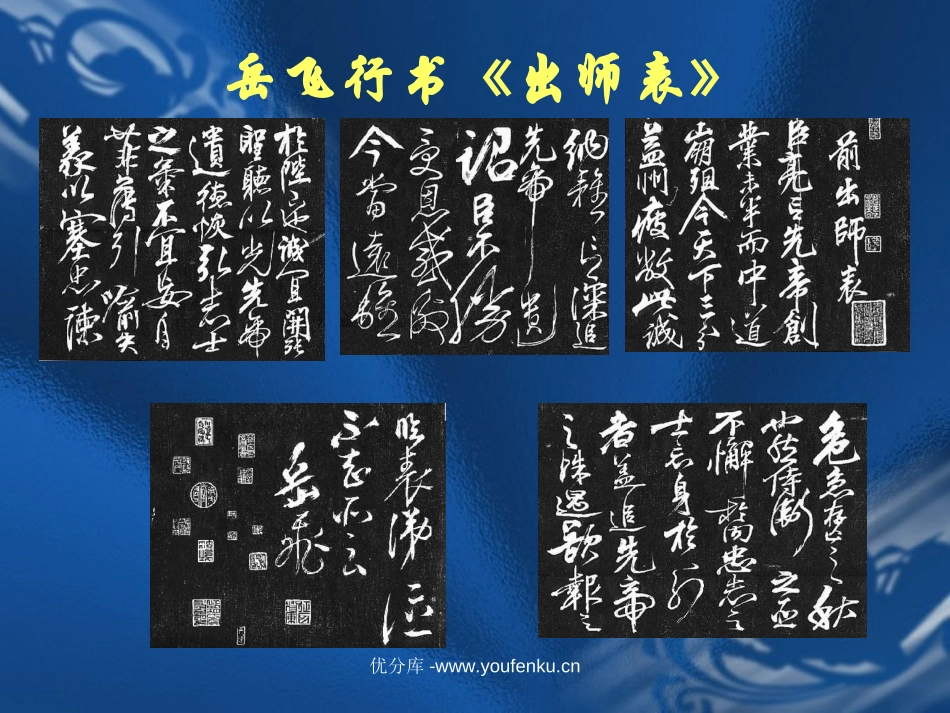 岳飞行书《出师表》
前出師表
臣亮言先帝創
業未半而中道
崩殂今天下三分
益州疲敝此誠
危急存亡之秋
也然侍衛之臣
不懈於內忠志之
士忘身於外
者蓋追先帝
之殊遇欲報之
於陛下誠宜開張
聖聽以光先帝
遺德恢弘志士
之氣不宜妄自
菲薄引喻失
義以塞忠諫
納雅言深追
先帝遺
詔臣不勝
受恩感激
今當遠離
臨表涕泣
不知所云
岳飛
优分库 -www.youfenku.cn